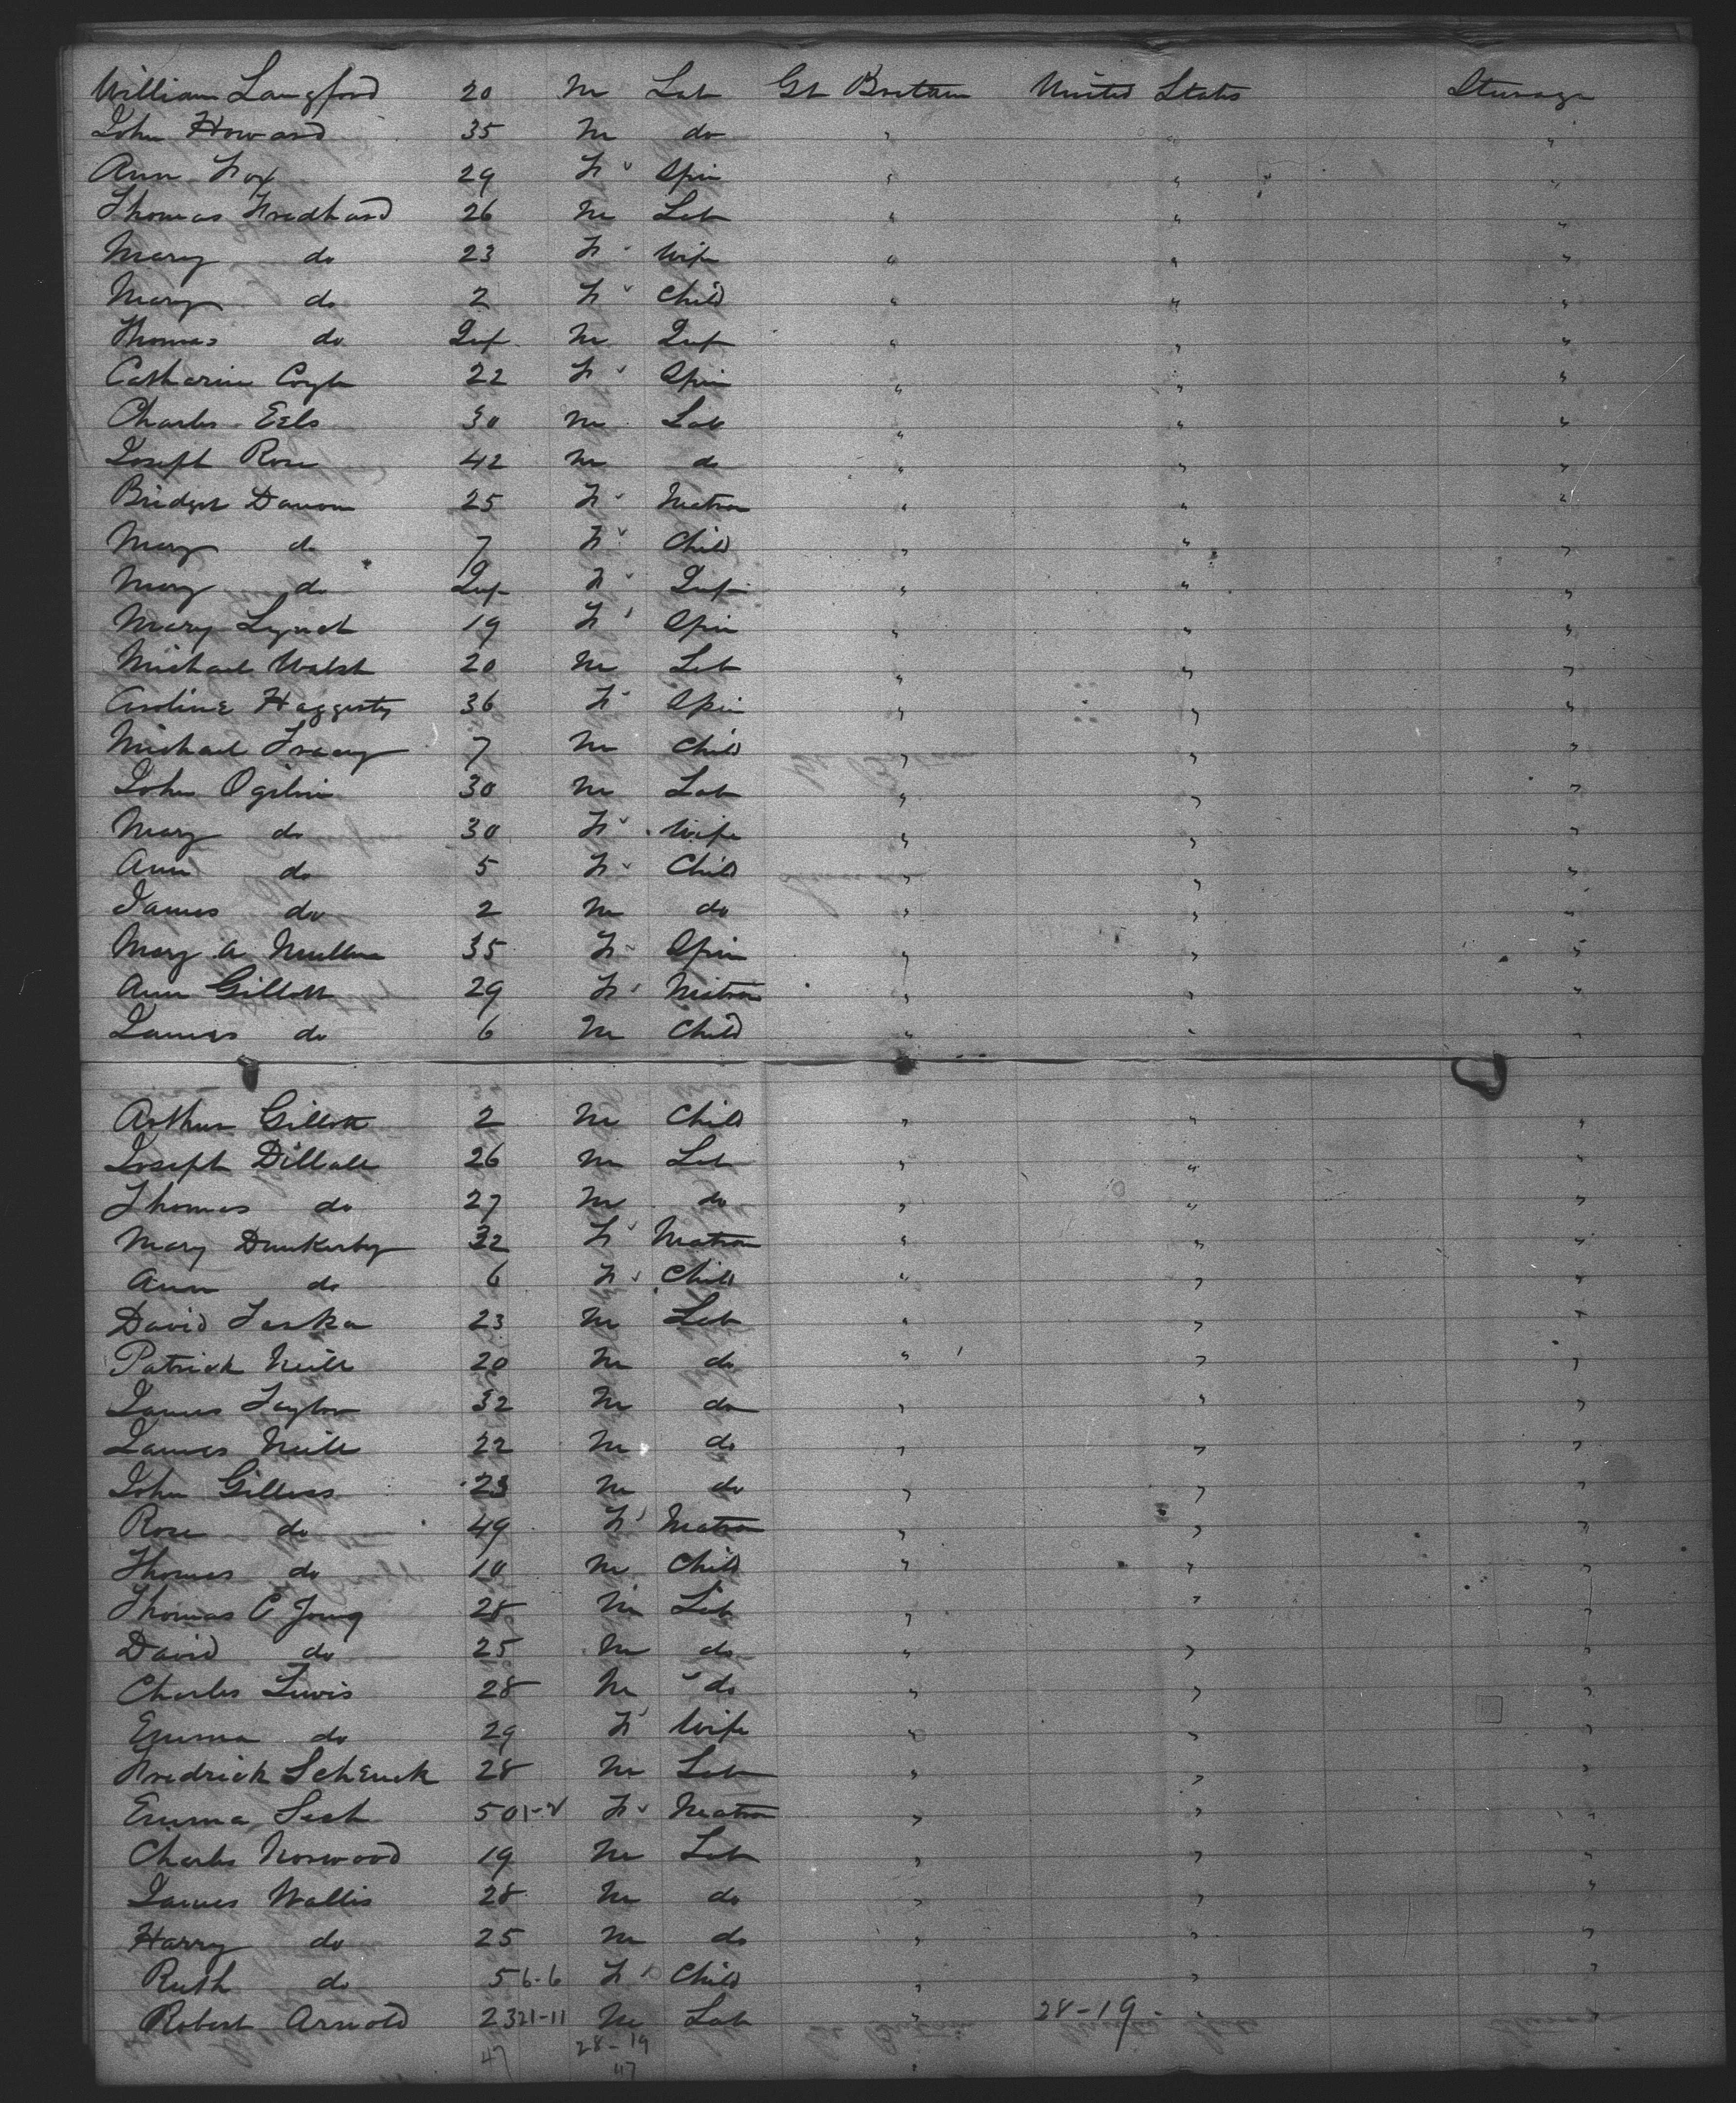 William Langford 20 M Lab Gt Britain United States Steerage
John Howard 35 M do " " "
Ann Fox 29 F Spin " " "
Thomas 26 M Lab " " "
Mary do 23 F Wife " " "
Mary do 2 F Child " " "
Thomas do Inf M Inf " " "
Catharine Coyle 22 F Spin " " "
Charles Eels 30 M Lab " " "
Joseph Rose 42 M do " " "
Bridget 25 F Matron " " "
Mary do 7 F Child " " "
Mary do Inf F Inf " " "
Mary Lynch 19 F Spin " " "
Michael Walsh 20 M Lab " " "
Caroline Haggerty 36 F Spin " " "
Michael Tracey 7 M Child " " "
John Ogilvie 30 M Lab " " "
Mary do 30 F Wife " " "
Ann do 5 F Child " " "
James do 2 M do " " "
Mary A Mullen 35 F Spin " " "
Ann Gillott 29 F Matron " " "
James do 6 M Child " " "
Arthur Gillott 2 M Child " " "
Joseph 26 M Lab " " "
Thomas do 27 M do " " "
Mary Dunkerby 32 F Matron " " "
Ann do 6 F Child " " "
David 23 M Lab " " "
Patrick Neill 20 M do " " "
James Taylor 32 M do " " "
James Neill 22 M do " " "
John Gilless 23 M do " " "
Rose do 49 F Matron " " "
Thomas do 10 M Child " " "
Thomas C Jong 28 M Lab " " "
David do 25 M do " " "
Charles Lewis 28 M do " " "
Emma do 29 F Wife " " "
Fredrick Schenck 28 M Lab " " "
Emma 50 1-2 F Matron " " "
Charles Norwood 19 M Lab " " "
James Wallis 28 M do " " "
Harry do 25 M do " " "
Ruth do 5 6-6 F Child " " "
Robert Arnold 23 21-11 M Lab " 28-19- " "
47 28-19
47